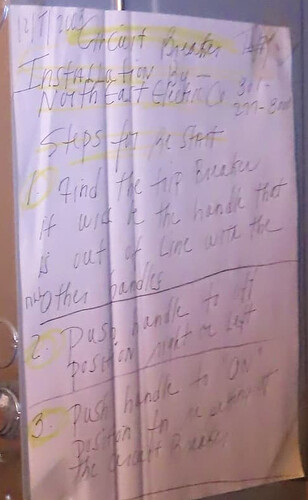 Circuit Breaker
Installation By -
North East Electric Co 301-
Steps for Re Start
1. Find the trip Breaker
it will be the handle that
is out of line with the
other handles
2. Push handle to
position
3. Push handle to "ON"
position
the circuit Breaker